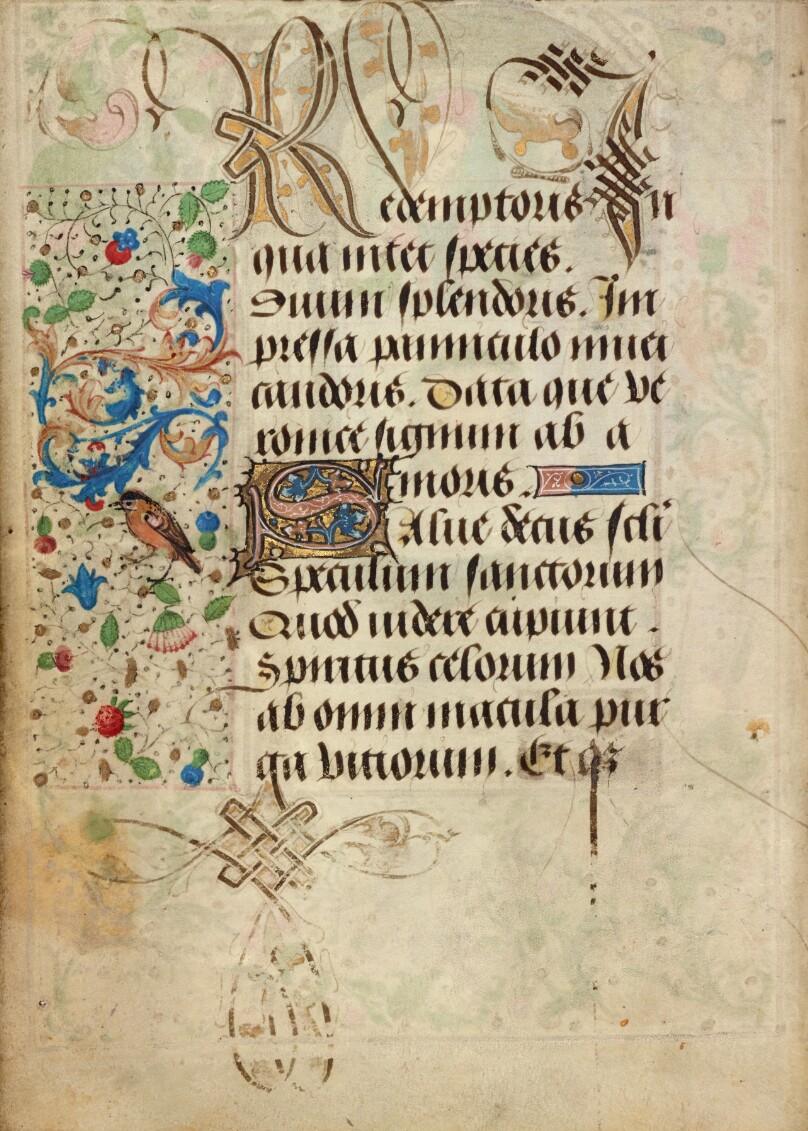 Redemptoris In
qua nitet species.
Diuini splendoris. Im
pressa panniculo niuei
candoris. Data que ve
ronice signum ab a
moris.
Salue decus scli
Speculum sanctorum
Quod uidere cupiunt.
Spiritus celorum Nos
ab omni macula pur
ga vitiorum. Et qz